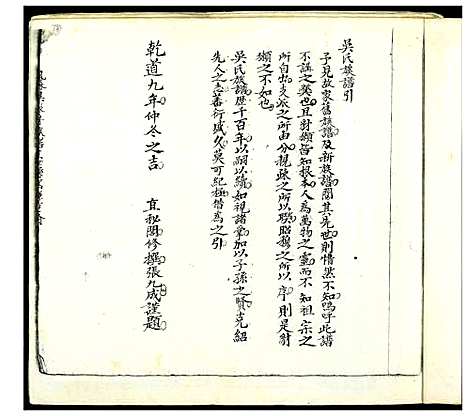 吳氏族譜引
予見故家舊族譜及新族譜閱其先世則懵然不知嗚呼此譜
不講之獘也且豺獺皆知根本人為萬物之靈而不知祖宗之
所自出支派之所由分親疎之所以聯昭穆之所以序則是豺
獺之不如也
吳氏族譜歷千百年以嗣以續如視諸掌加以子孫之賢克紹
先人之吉蕃衍盛久莫可紀極借為之引
乾道九年仲冬之吉
直秘閣修撰張九成謹題